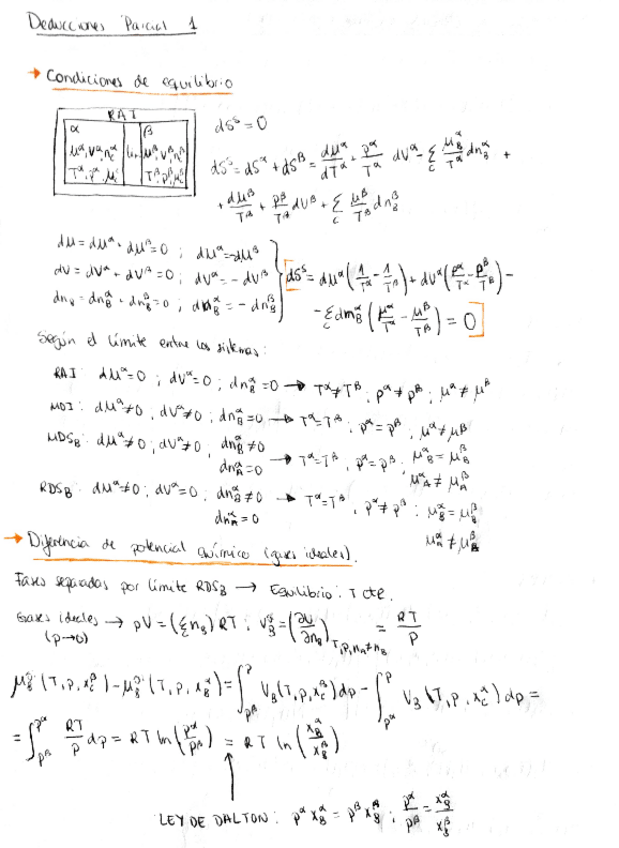 Deducciones Parcial 1
→ Condiciones de equilibrio
RAI
α β
μ^α, V^α, n_c^α μ^β, V^β, n_c^β
T^α, p^α, μ_c^α T^β, p^β, μ_c^β
dS^s = 0
dS^s = dS^α + dS^β = dμ^α/dT^α + p^α/T^α dV^α - Σ_c μ_B^α/T^α dn_B^α +
+ dμ^β/T^β + p^β/T^β dV^β + Σ_c μ_B^β/T^β dn_B^β
dμ = dμ^α + dμ^β = 0 ; dμ^α = -dμ^β
dV = dV^α + dV^β = 0 ; dV^α = - dV^β
dn_B = dn_B^α + dn_B^β = 0 ; dn_B^α = - dn_B^β
dS^s = dμ^α (1/T^α - 1/T^β) + dV^α (p^α/T^α - p^β/T^β) -
- Σ_c dn_B^α (μ^α/T^α - μ^β/T^β) = 0
Según el límite entre los sistemas:
RAI: dμ^α = 0 ; dV^α = 0 ; dn_B^α = 0 → T^α ≠ T^β ; p^α ≠ p^β ; μ^α ≠ μ^β
MDI: dμ^α ≠ 0 , dV^α ≠ 0 ; dn_B^α = 0 → T^α = T^β ; p^α = p^β ; μ^α ≠ μ^β
MDS_B: dμ^α ≠ 0 ; dV^α ≠ 0 , dn_B^α ≠ 0 dn_A^α = 0 → T^α = T^β , p^α = p^β ; μ_B^α = μ_B^β μ_A^α ≠ μ_A^β
RDS_B: dμ^α ≠ 0 ; dV^α = 0 ; dn_B^α ≠ 0 dn_A^α = 0 → T^α = T^β , p^α ≠ p^β ; μ_B^α = μ_B^β μ_A^α ≠ μ_A^β
→ Diferencia de potencial químico (gases ideales).
Fases separadas por límite RDS_B → Equilibrio: T cte.
Gases ideales → pV = (Σ n_B) RT ; V_B = (∂V/∂n_B)_{T, p, n_A ≠ n_B} = RT/p
(p→0)
μ_B (T, p, x_c^β) - μ_B (T, p, x_B^α) = ∫_{p^β}^{p} V_B (T, p, x_c^β) dp - ∫_{p^α}^{p} V_B (T, p, x_c^α) dp =
= ∫_{p^β}^{p^α} RT/p dp = RT ln (p^α/p^β) = RT ln (x_B^α/x_B^β)
LEY DE DALTON: p^α x_B^α = p^β x_B^β ; p^α/p^β = x_B^α/x_B^β